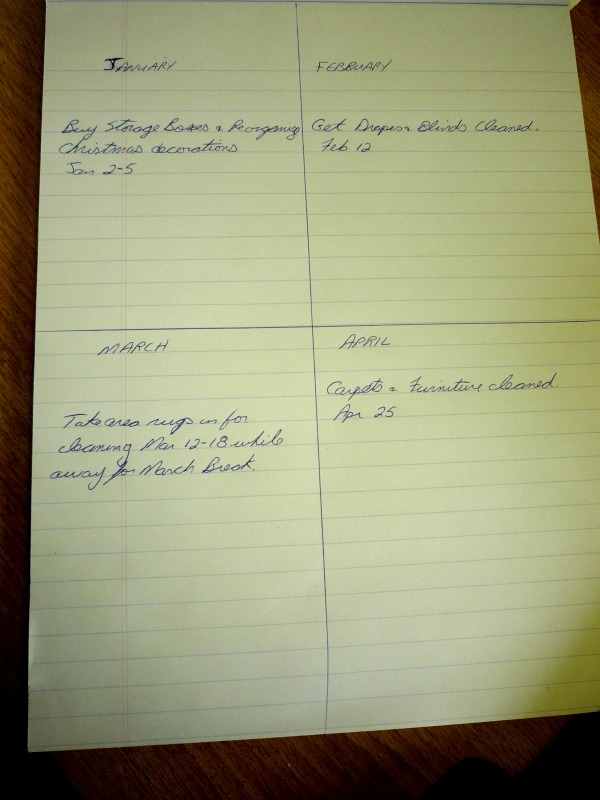 JANUARY
Buy Storage Boxes & Reorganize
Christmas decorations
Jan 2-5
FEBRUARY
Get Drapes & Blinds Cleaned.
Feb 12
MARCH
Take area rugs in for
cleaning Mar 12-18 while
away for March Break.
APRIL
Carpets & Furniture cleaned.
Apr 25